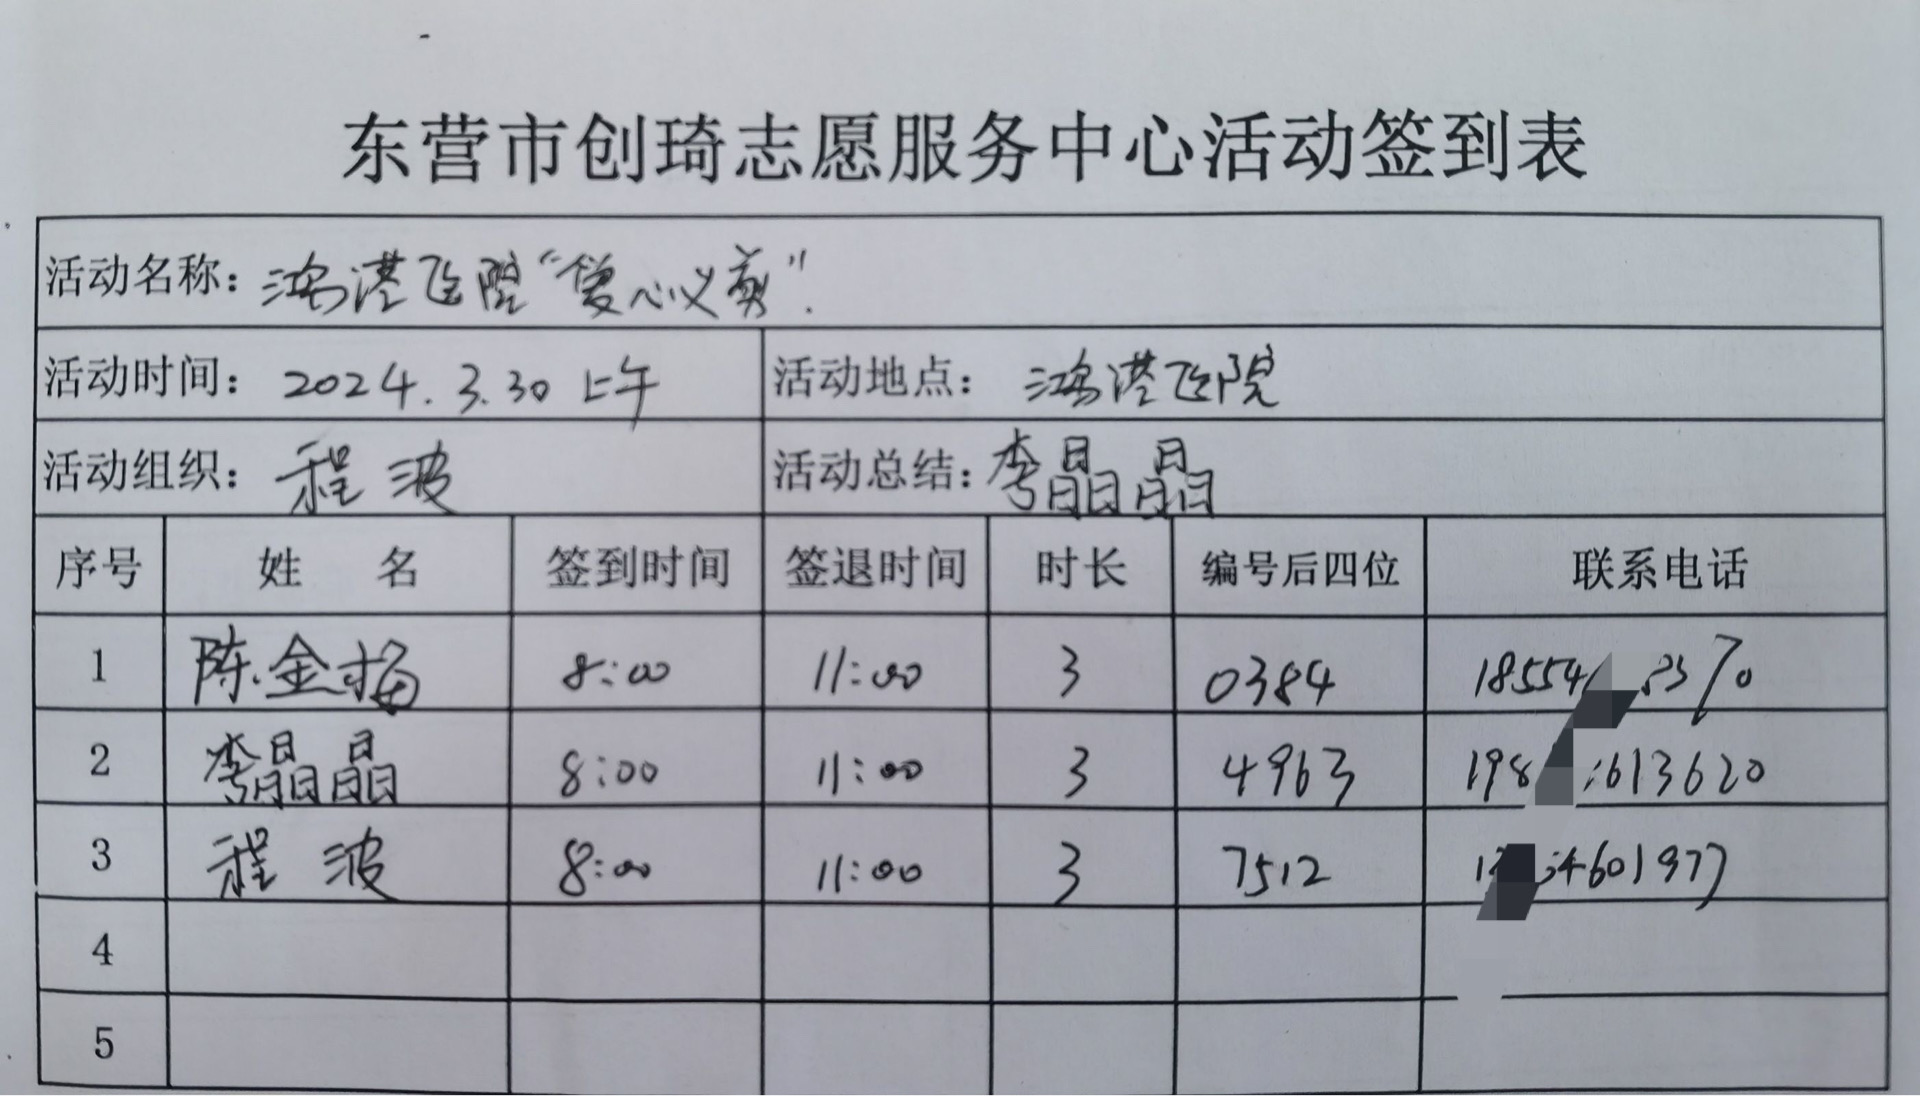 东营市创琦志愿服务中心活动签到表
活动名称：鸿港医院“爱心义剪”.
活动时间：2024.3.30 上午 活动地点：鸿港医院
活动组织：程波 活动总结：李晶晶
序号 姓名 签到时间 签退时间 时长 编号后四位 联系电话
1 陈金梅 8:00 11:00 3 0384 18554
2 李晶晶 8:00 11:00 3 4963 198 613620
3 程波 8:00 11:00 3 7512 4601977
4
5